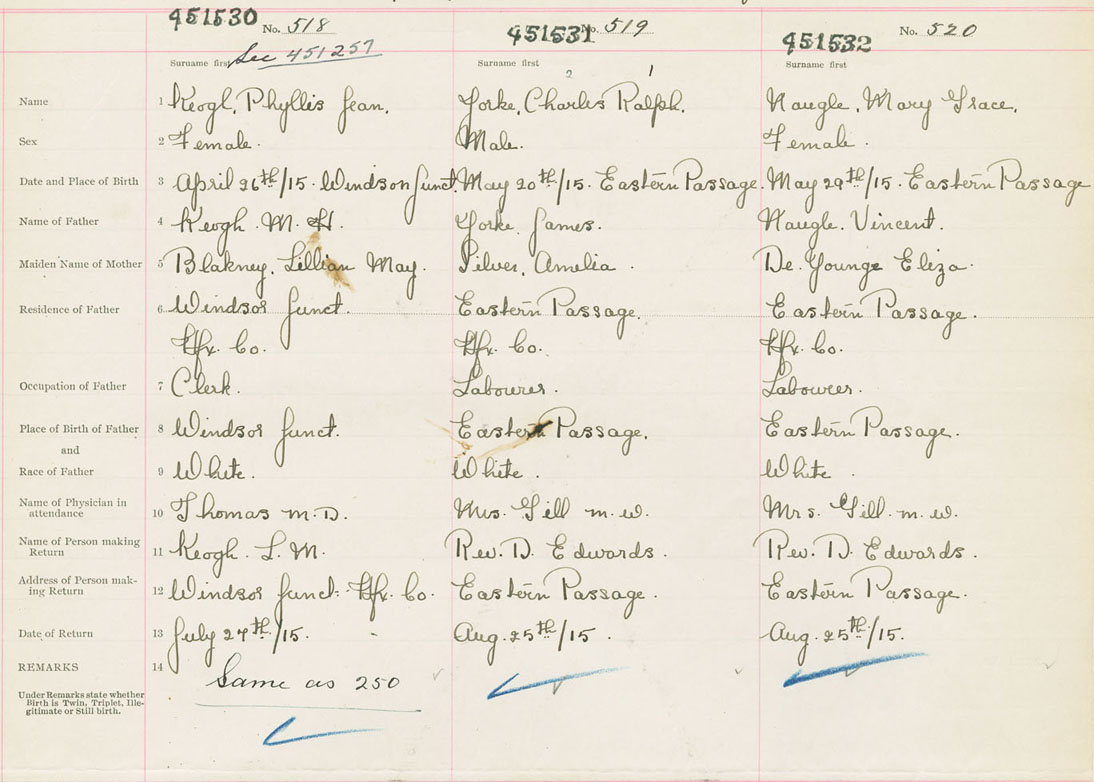 451530 No. 518 451531 No. 519 451532 No. 520
See 451257
Surname first Surname first Surname first
2 1
Name 1 Keogh, Phyllis Jean. Yorke, Charles Ralph. Naugle, Mary Grace.
Sex 2 Female. Male. Female.
Date and Place of Birth 3 April 26th/15. Windsor Junct. May 20th/15. Eastern Passage. May 29th/15. Eastern Passage
Name of Father 4 Keogh. M. H. Yorke, James. Naugle, Vincent.
Maiden Name of Mother 5 Blakney, Lillian May. Silver, Amelia. De Younge Eliza.
Residence of Father 6 Windsor Junct. Eastern Passage. Eastern Passage.
Hfx. Co. Hfx. Co. Hfx. Co.
Occupation of Father 7 Clerk. Labourer. Labourer.
Place of Birth of Father 8 Windsor Junct. Eastern Passage. Eastern Passage.
and
Race of Father 9 White. White. White.
Name of Physician in
attendance 10 Thomas M.D. Mrs. Gill m.w. Mrs. Gill m.w.
Name of Person making
Return 11 Keogh. L. M. Rev. D. Edwards. Rev. D. Edwards.
Address of Person mak-
ing Return 12 Windsor Junct. Hfx. Co. Eastern Passage. Eastern Passage.
Date of Return 13 July 27th/15. Aug. 25th/15. Aug. 25th/15.
REMARKS 14 Same as 250
Under Remarks state whether
Birth is Twin, Triplet, Ille-
gitimate or Still birth.